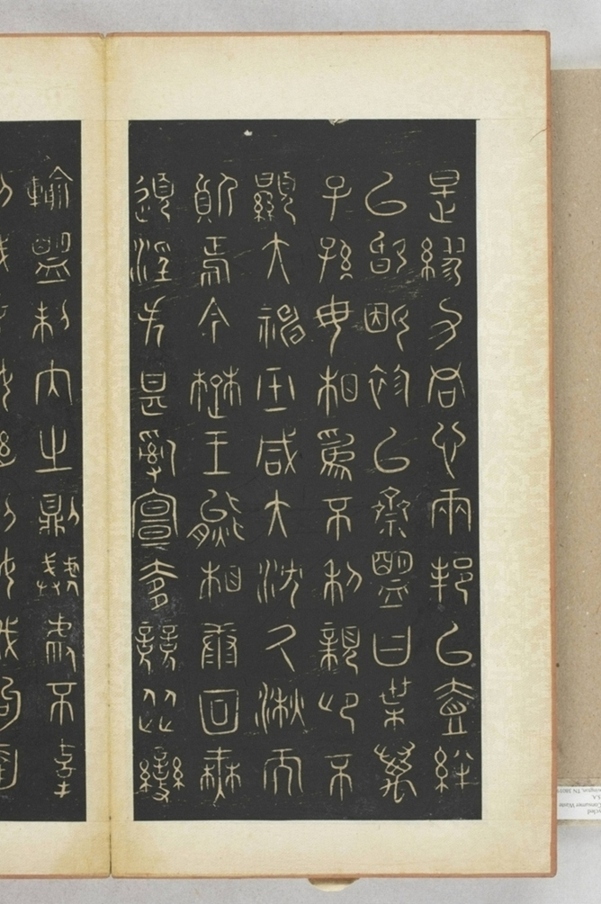 是繆力同心兩邦以壹絆
以婚姻袗以齋盟曰枼萬
子孫毋相為不利親卬不
顯大神巫咸大沈久湫而
質焉今楚王熊相康回無
道淫失甚亂宣侈競從變
輸盟制內之則虣虐不辜